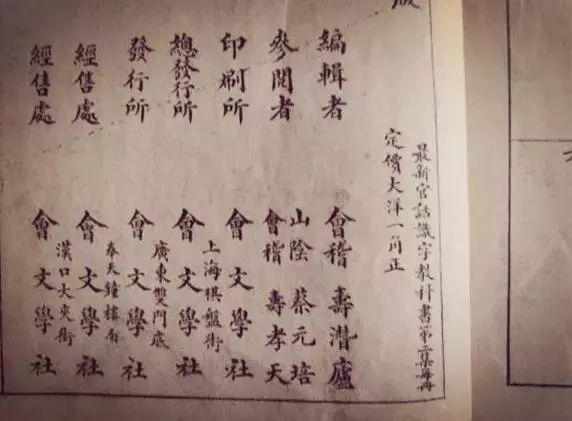 最新官話識字教科書第二集每冊
定價大洋一角正
編輯者 會稽 壽潛廬
參閱者 山陰 蔡元培
會稽 壽孝天
印刷所 會文學社
總發行所 上海棋盤街 會文學社
發行所 廣東雙門底 會文學社
經售處 奉天鐘樓南 會文學社
經售處 漢口大夾街 會文學社